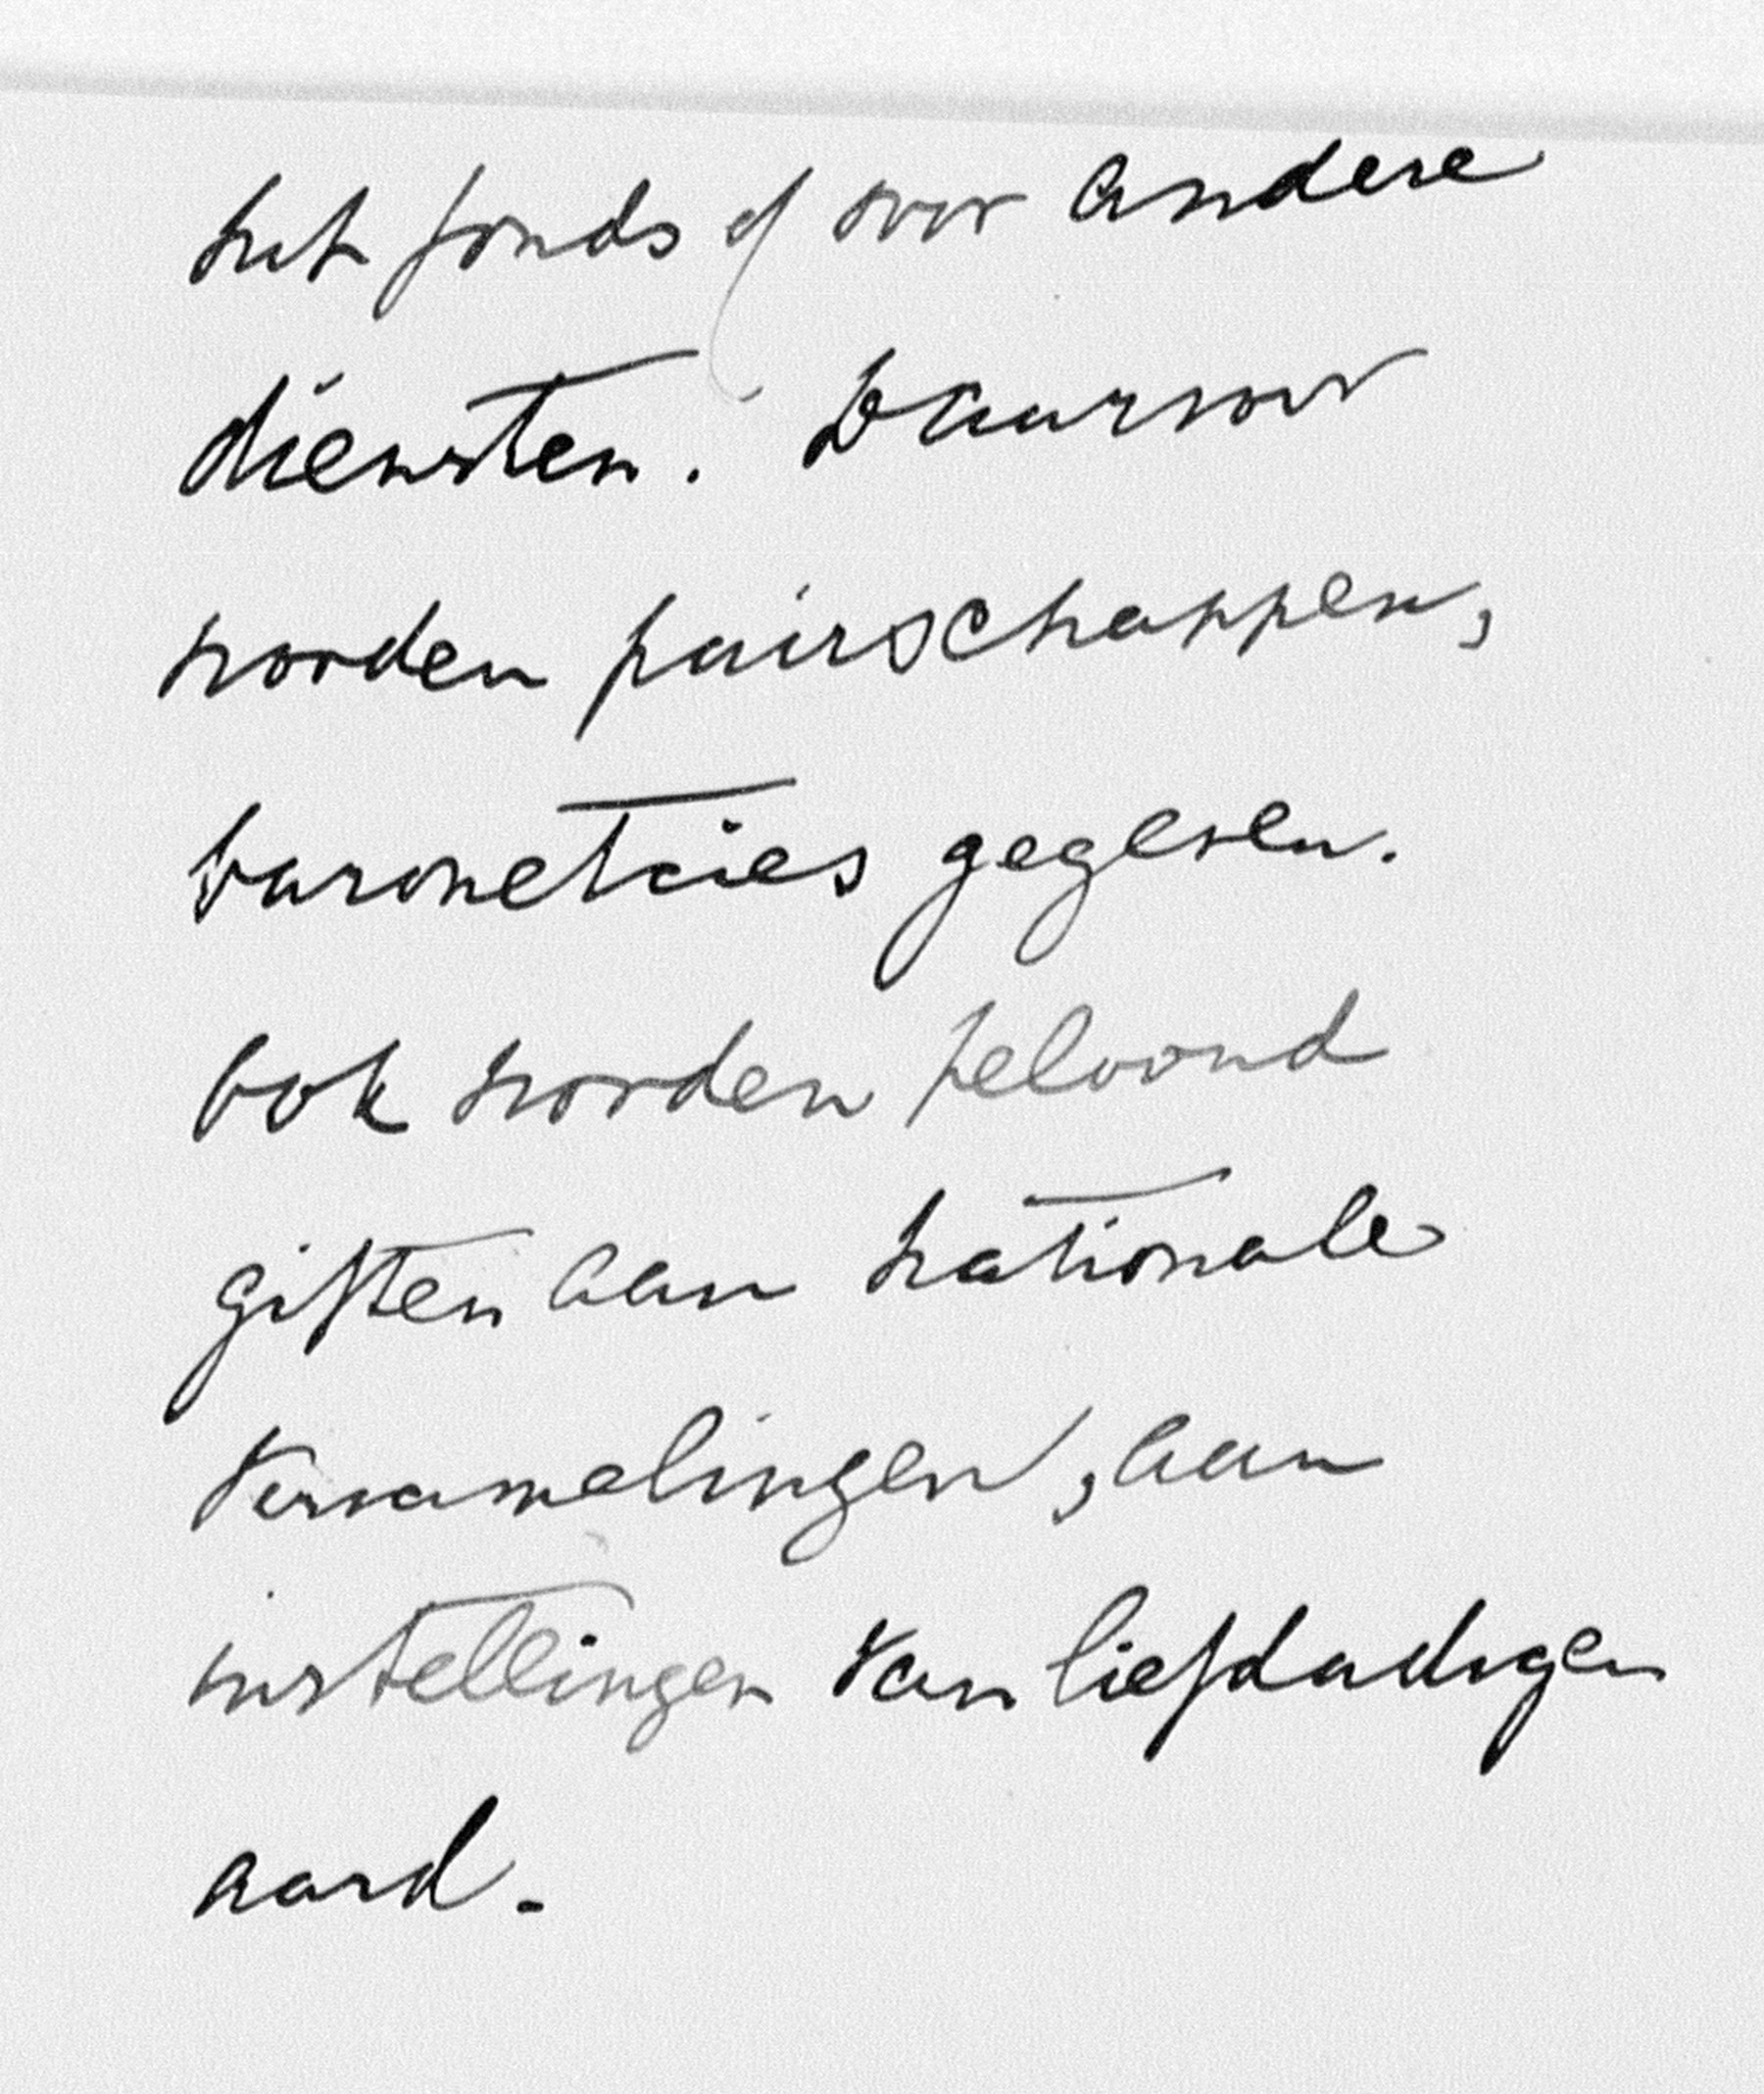 het fonds of voor andere
diensten. Daarvoor
worden pairschappen,
baronetcies gegeven.
Ook worden beloond
giften aan nationale
Verzamelingen, aan
instellingen van liefdadigen
aard.